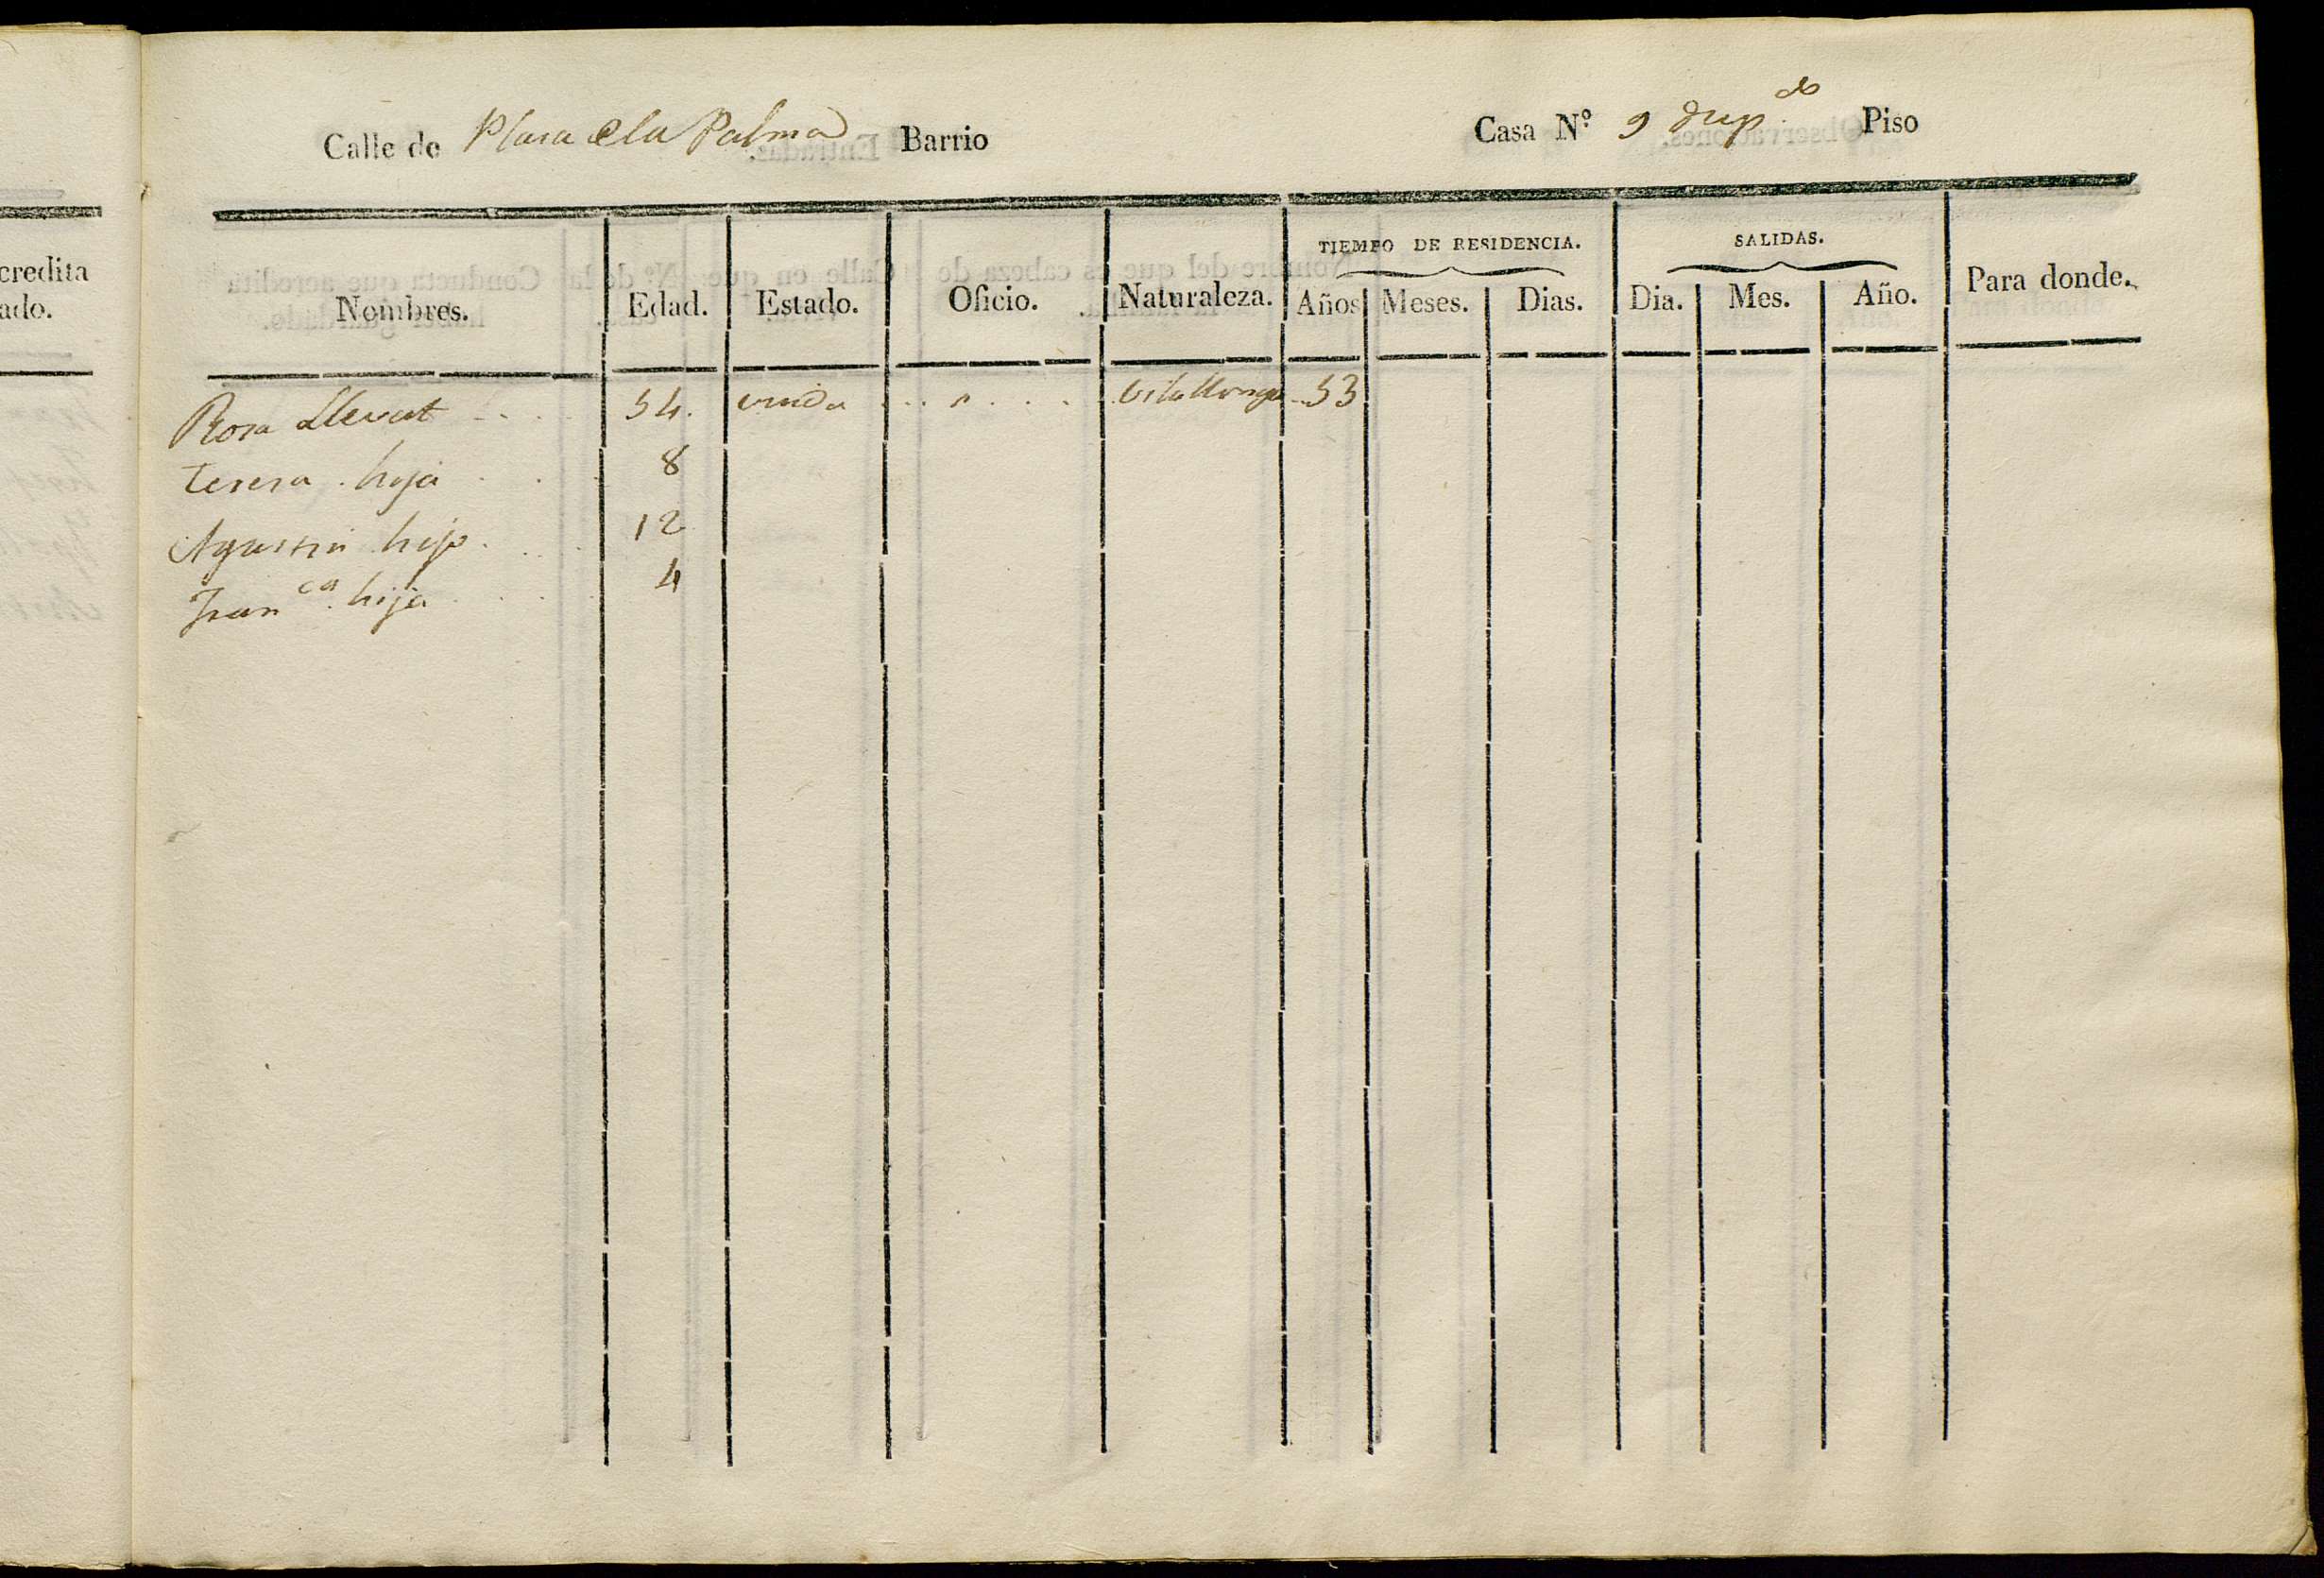 Calle de Plasa de la Palma Barrio Casa N.º 9 dup.do Piso
credita
ado.
TIEMPO DE RESIDENCIA. SALIDAS.
Nombres. Edad. Estado. Oficio. Naturaleza. Años Meses. Dias. Dia. Mes. Año. Para donde.
Rosa Llevat 54. viuda Vilallonga 53
Teresa hija 8
Agustin hijo 12
Fran.ca hija 4